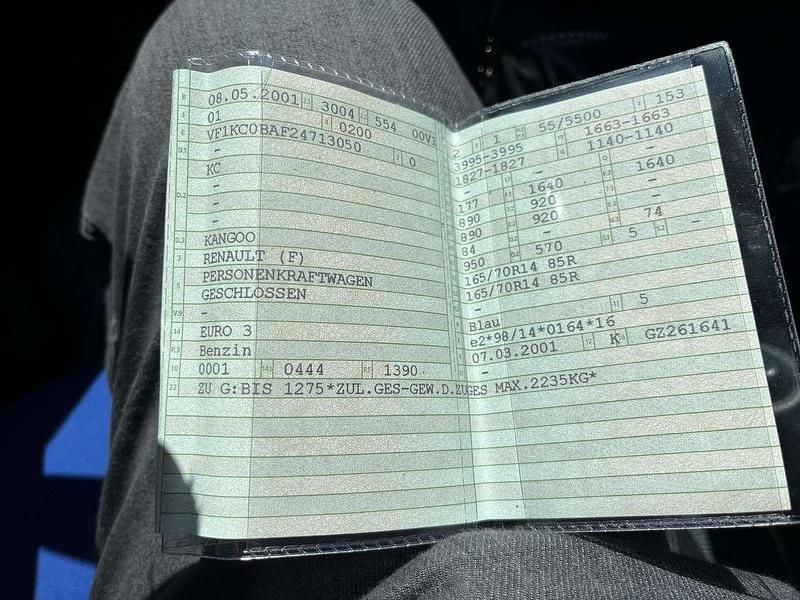 08.05.2001 3004 554 00V1
01 0200
VF1KC0BAF24713050 0
-
KC
-
-
-
KANGOO
RENAULT (F)
PERSONENKRAFTWAGEN
GESCHLOSSEN
-
EURO 3
Benzin
0001 0444 1390
ZU G:BIS 1275*ZUL.GES-GEW.D.ZUGES MAX.2235KG*
2 1 55/5500 153
3995-3995 1663-1663
1827-1827 1140-1140
- - -
177 1640 1640
890 920 -
890 920 -
84 - 74
950 570 5 -
165/70R14 85R
165/70R14 85R
-
Blau 5
e2*98/14*0164*16
07.03.2001 K GZ261641
-